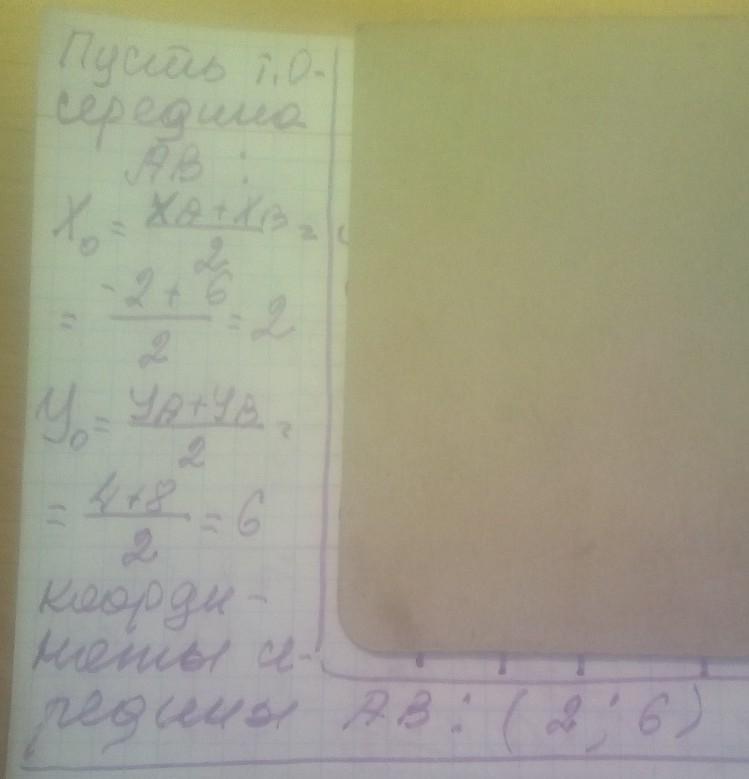 Пусть т.О-
середина
АВ :
X₀ = (XA + XB)/2 =
= (-2 + 6)/2 = 2
У₀ = (УA + УB)/2 =
= (4+8)/2 = 6
коорди-
наты се-
редины АВ: (2; 6)